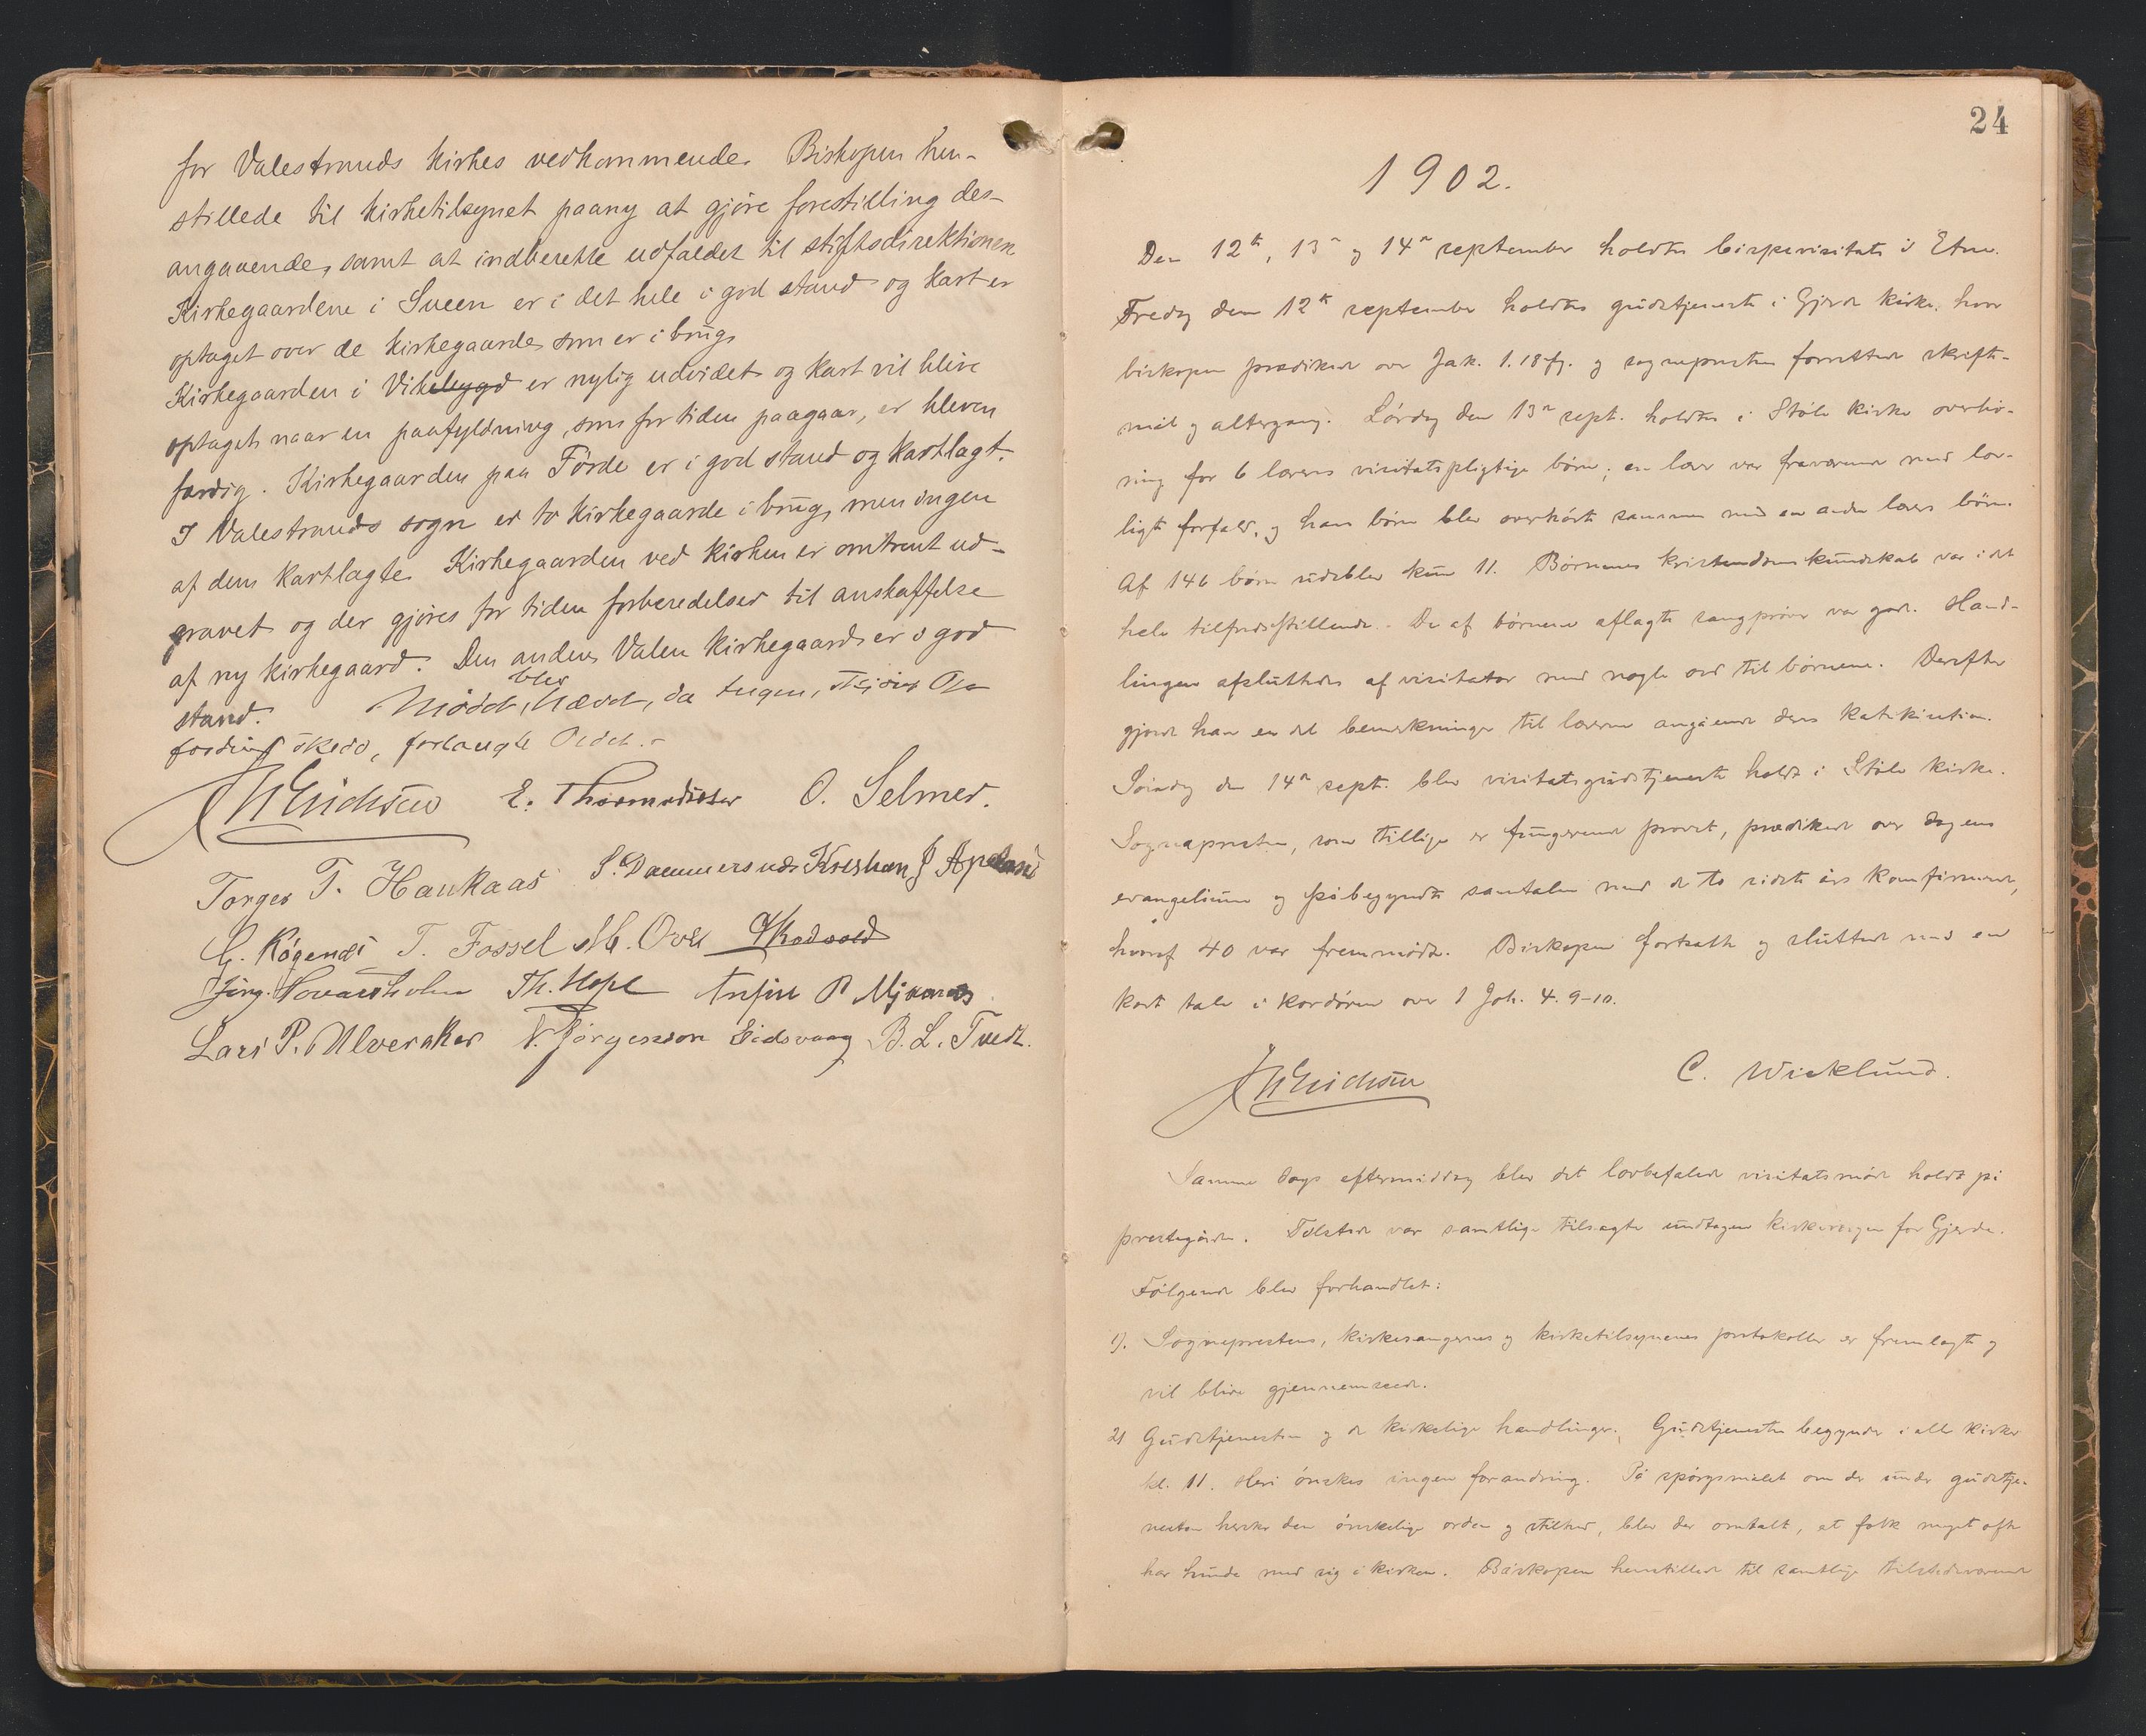 for Valestrands kirkes vedkommende. Biskopen hen-
stillede til kirketilsynet paany at gjøre forestilling des-
angaaende, samt at indberette udfaldet til stiftsdirektionen
Kirkegaardene i Sveen er i det hele i god stand og kart er
optaget over de kirkegaarde, som er i brug.
Kirkegaarden i Vikebygd er nylig udvidet og kart vil blive
optaget, naar en paafyldning, som for tiden paagaar, er bleven
færdig. Kirkegaarden paa Førde er i god stand og kartlagt.
I Valestrands sogn er to kirkegaarde i brug, men ingen
af dem kartlagte. Kirkegaarden ved kirken er omtrent ud-
gravet og der gjøres for tiden forberedelser til anskaffelse
af ny kirkegaard. Den anden, Valen kirkegaard, er i god
stand. Mødet blev hævet, da Ingen,
fordring skeed, forlangte Ordet.
E. Thormodsæter O. Selmer.
Torger T. Haukaas S. Dammersnæs Kristian J Apeland
G. Røgenæs T. Fossel M. Over
Th. Hope Anfin P Mjanæs
Lars P. Ulveraker N. Jørgensson Eidsvaag B. L. Tvedt.
24
1902.
Den 12te, 13de og 14de september holdtes bispevisitats i Etne.
Fredag den 12te september holdtes gudstjeneste i Gjerde kirke, hvor
biskopen prædikede over Jak. 1.18 fg. og sognepresten forrettede skrifte-
mål og altergang. Lørdag den 13de sept. holdtes i Støle kirke overhø-
ring for 6 læreres visitatspligtige børn; en lærer var fraværende med lov-
ligt forfald, og hans børn blev overhørt sammen med en anden lærers børn.
Af 146 børn udeblev kun 11. Børnenes kristendomskundskab var i det
hele tilfredsstillende. De af børnene aflagte sangprøver var gode. Hand-
lingen afsluttedes af visitator med nogle ord til børnene. Derefter
gjorde han en del bemerkninger til lærerne angående deres katekisation.
Søndag den 14de sept. blev visitatsgudstjeneste holdt i Støle kirke.
Sognepresten, som tillige er fungerende provst, prædikede over dagens
evangelium og påbegyndte samtalen med de to sidste års konfirmerede,
hvoraf 40 var fremmødt. Biskopen fortsatte og sluttede med en
kort tale i kordøren over 1 Joh. 4. 9-10.
C. Wicklund.
Samme dags eftermiddag blev det lovbefalede visitatsmøde holdt på
prestegården. Tilstede var samtlige tilsagte undtagen kirkevergen for Gjerde.
Følgende blev forhandlet:
1). Sogneprestens, kirkesangernes og kirketilsynenes protokoller er fremlagte og
vil blive gjennemseede.
2) Gudstjenesten og de kirkelige handlinger. Gudstjenesten begynder i alle kirker
kl. 11. Heri ønskes ingen forandring. På spørgsmålet om der under gudstje-
nesten hersker den ønskelige orden og stilhed, blev der omtalt, at folk meget ofte
har hunde med sig i kirken. Biskopen henstillede til samtlige tilstedeværende